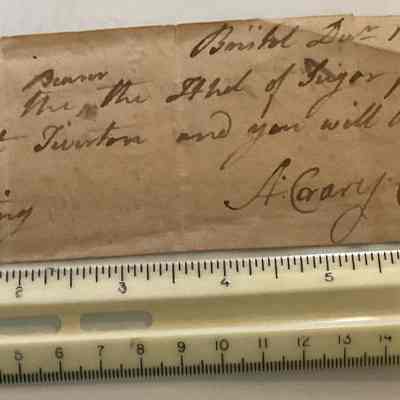 Bristol Decr 1
Bearer
the the Hhd of Sugar
Tiverton and you will
ng
A. Crary
2 3 4 5
5 6 7 8 9 10 11 12 13 14